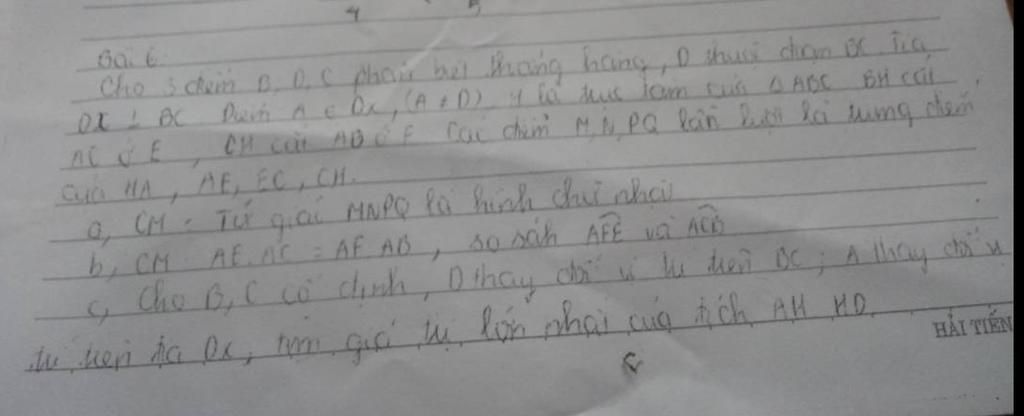 4 5
Bài 6.
Cho 3 điểm B, D, C phân biệt thẳng hàng, D thuộc đoạn BC Tia
Dx ⊥ BC Điểm A ∈ Dx, (A ≠ D) H là trực tâm của Δ ABC BH cắt
AC ở E, CH cắt AB ở F Các điểm M, N, P, Q lần lượt là trung điểm
của HA, AE, EC, CH.
a, CM: Tứ giác MNPQ là hình chữ nhật
b, CM AE.AC = AF.AB, so sánh AFE và ACB
c, Cho B, C cố định, D thay đổi vị trí trên BC; A thay đổi vị
trí trên tia Dx, tìm giá trị lớn nhất của tích AH HD.
HẢI TIẾN